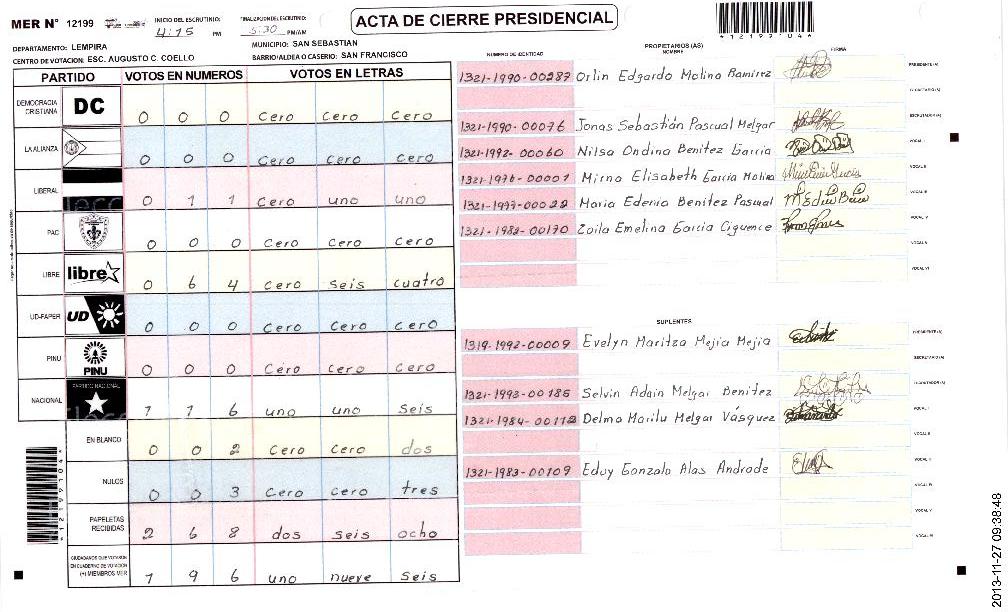 MER N° 12199
INICIO DEL ESCRUTINIO: 4:15 PM
FINALIZACION DEL ESCRUTINIO: 5:30 PM/AM
ACTA DE CIERRE PRESIDENCIAL
*12199104*
DEPARTAMENTO: LEMPIRA
MUNICIPIO: SAN SEBASTIAN
CENTRO DE VOTACION: ESC. AUGUSTO C. COELLO
BARRIO/ALDEA O CASERIO: SAN FRANCISCO
PARTIDO VOTOS EN NUMEROS VOTOS EN LETRAS
DEMOCRACIA CRISTIANA DC 0 0 0 Cero Cero Cero
LA ALIANZA 0 0 0 Cero Cero Cero
LIBERAL 0 1 1 Cero uno uno
PAC 0 0 0 Cero Cero Cero
LIBRE libre 0 6 4 Cero seis cuatro
UD-FAPER UD 0 0 0 Cero Cero Cero
PINU PINU 0 0 0 Cero Cero Cero
NACIONAL PARTIDO NACIONAL 1 1 6 uno uno Seis
EN BLANCO 0 0 2 Cero Cero dos
NULOS 0 0 3 Cero Cero tres
PAPELETAS RECIBIDAS 2 6 8 dos seis ocho
CIUDADANOS QUE VOTARON EN CUADERNO DE VOTACION (+) MIEMBROS MER 1 9 6 uno nueve Seis
PROPIETARIOS (AS)
NUMERO DE IDENTIDAD NOMBRE FIRMA
1321-1990-00287 Orlin Edgardo Molina Ramirez PRESIDENTE (A)
SECRETARIO (A)
1321-1990-00076 Jonas Sebastián Pascual Melgar ESCRUTADOR (A)
1321-1992-00060 Nilsa Ondina Benitez Garcia VOCAL I
1321-1976-00001 Mirna Elisabeth Garcia Molina VOCAL II
1321-1977-00022 Maria Edenia Benitez Pascual VOCAL III
1321-1982-00170 Zoila Emelina Garcia Ciguence VOCAL IV
VOCAL V
VOCAL VI
SUPLENTES
1319-1992-00009 Evelyn Maritza Mejia Mejia PRESIDENTE (A)
SECRETARIO (A)
1321-1993-00185 Selvin Adain Melgar Benitez ESCRUTADOR (A)
1321-1984-00112 Delma Marilu Melgar Vásquez VOCAL I
VOCAL II
1321-1983-00109 Eduy Gonzalo Alas Andrade VOCAL III
VOCAL IV
VOCAL V
VOCAL VI
2013-11-27 09:38:48